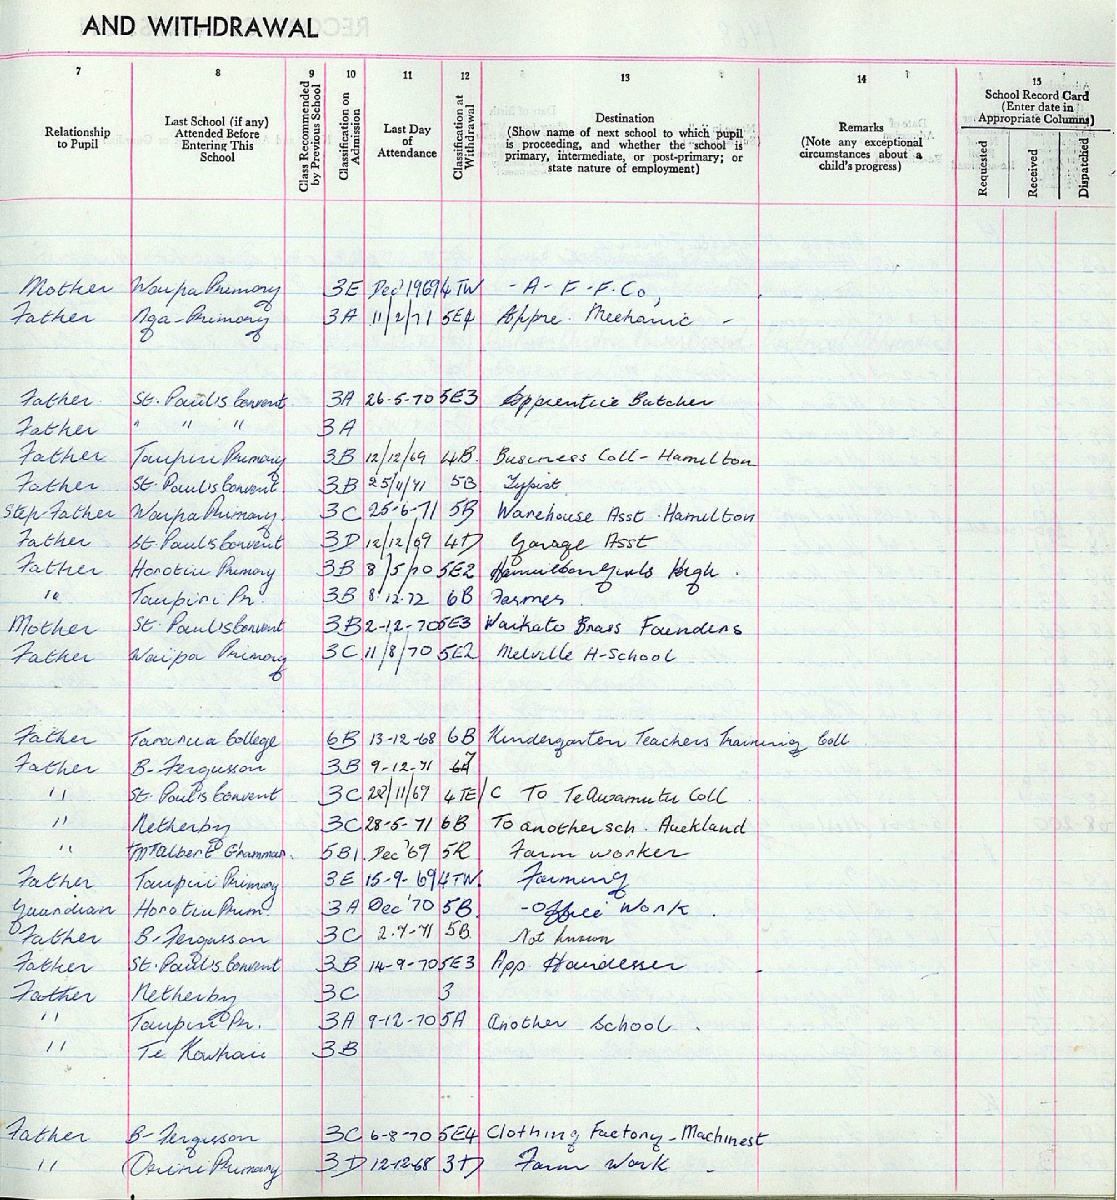 AND WITHDRAWAL
7 8 9 10 11 12 13 14 15
Relationship to Pupil
Last School (if any) Attended Before Entering This School
Class Recommended by Previous School
Classification on Admission
Last Day of Attendance
Classification at Withdrawal
Destination (Show name of next school to which pupil is proceeding, and whether the school is primary, intermediate, or post-primary; or state nature of employment)
Remarks (Note any exceptional circumstances about a child's progress)
School Record Card (Enter date in Appropriate Columns)
Requested Received Dispatched
Mother Waipa Primary 3E Dec' 1969 4TW - A - F - F. Co,
Father Nga-Primary 3A 11/2/71 5E4 Appre. Mechanic -
Father. St. Paul's Convent. 3A 26-5-70 5E3 Apprentice Butcher
Father " " " 3A
Father Taupiri Primary 3B 12/12/69 4B. Business Coll- Hamilton
Father St. Paul's Convent. 3B 5B Typist.
Step-Father Waipa Primary. 3C 25-6-71 5B Warehouse Asst. Hamilton
Father St. Paul's Convent 3D 12/12/69 4D Garage Asst
Father Horotiu Primary 3B 8/5/70 5E2 Hamilton Girls High.
" Taupiri Pr. 3B 8.12.72 6B Farmer
Mother St. Paul's Convent 3B 2-12-70 5E3 Waikato Brass Founders
Father Waipa Primary 3C 11/8/70 5E2 Melville H-School
Father Tararua College 6B 13-12-68 6B Kindergarten Teachers Training Coll
Father B. Fergusson 3B 9-12-71
" St. Paul's Convent 3C 22/11/69 4TE/C To Te Awamutu Coll
" Netherby 3C 28-5-71 6B To another sch. Auckland
" Mt Albert Grammar. 5B1. Dec '69 5R Farm worker
Father Taupiri Primary 3E 15-9-69 4TW. Farming
Guardian Horotiu Prim. 3A Dec '70 5B. - Office Work
Father B. Fergusson 3C 2.7-71 5B Not known
Father St. Paul's Convent 3B 14-9-70 5E3 App. Hairdesser
Father Netherby 3C 3
" Taupiri Pr. 3A 9-12-70 5A Another School.
" Te Kowhai 3B
Father B- Fergusson 3C 6-8-70 5E4 Clothing Factory - Machinest
" Orini Primary 3D 12-12-68 3D Farm Work -